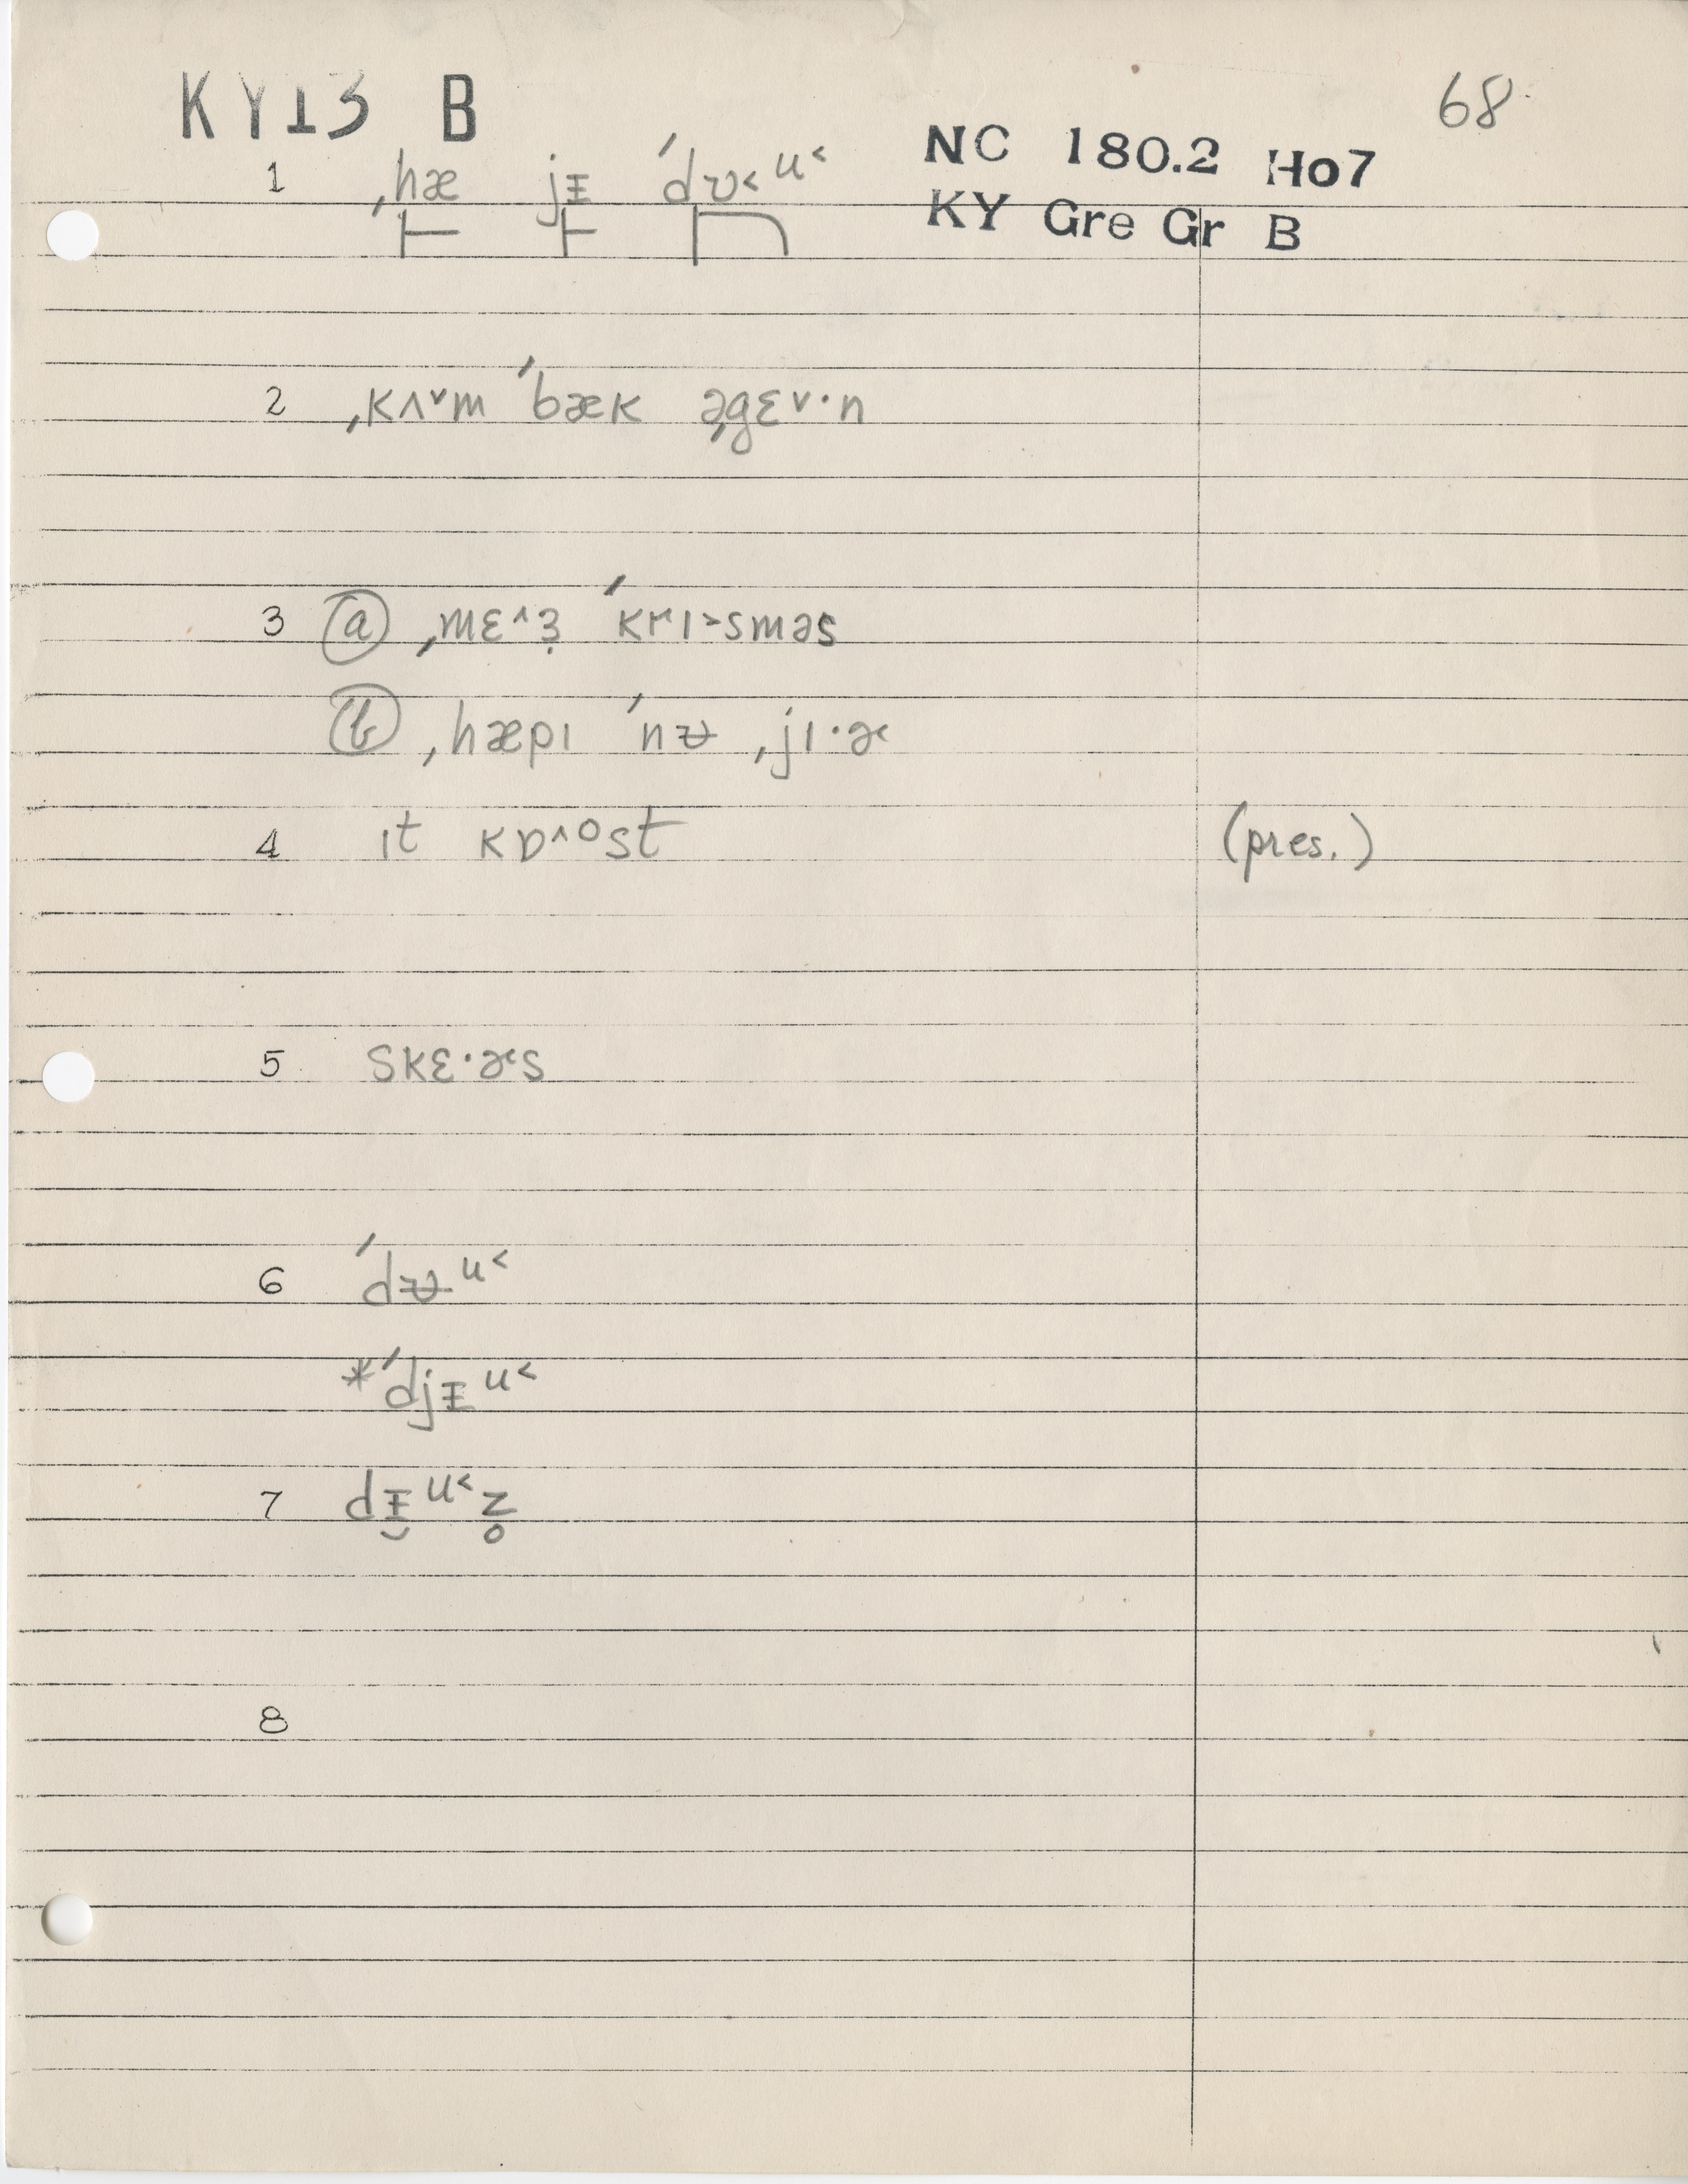 KY13 B
68
NC 180.2 Ho7
KY Gre Gr B
1 ˌhæ jᵻ ˈdʊ˂u˂
2 ˌkʌ˅m ˈbæk əˌgɛ˅·n
3 ⓐ ˌmɛ˄ɜ̣ ˈkrɪ˃sməs
ⓑ ˌhæpɪ ˈnᵿ ˌjɪ·ɚ
4 ɪt kɒ˄ost (pres.)
5 skɛ·ɚs
6 ˈdᵿu˂
*ˈdjᵻu˂
7 dᵻ̯u˂z̥
8